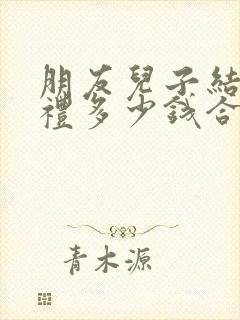 朋友兒子結
禮多少錢合
青木源